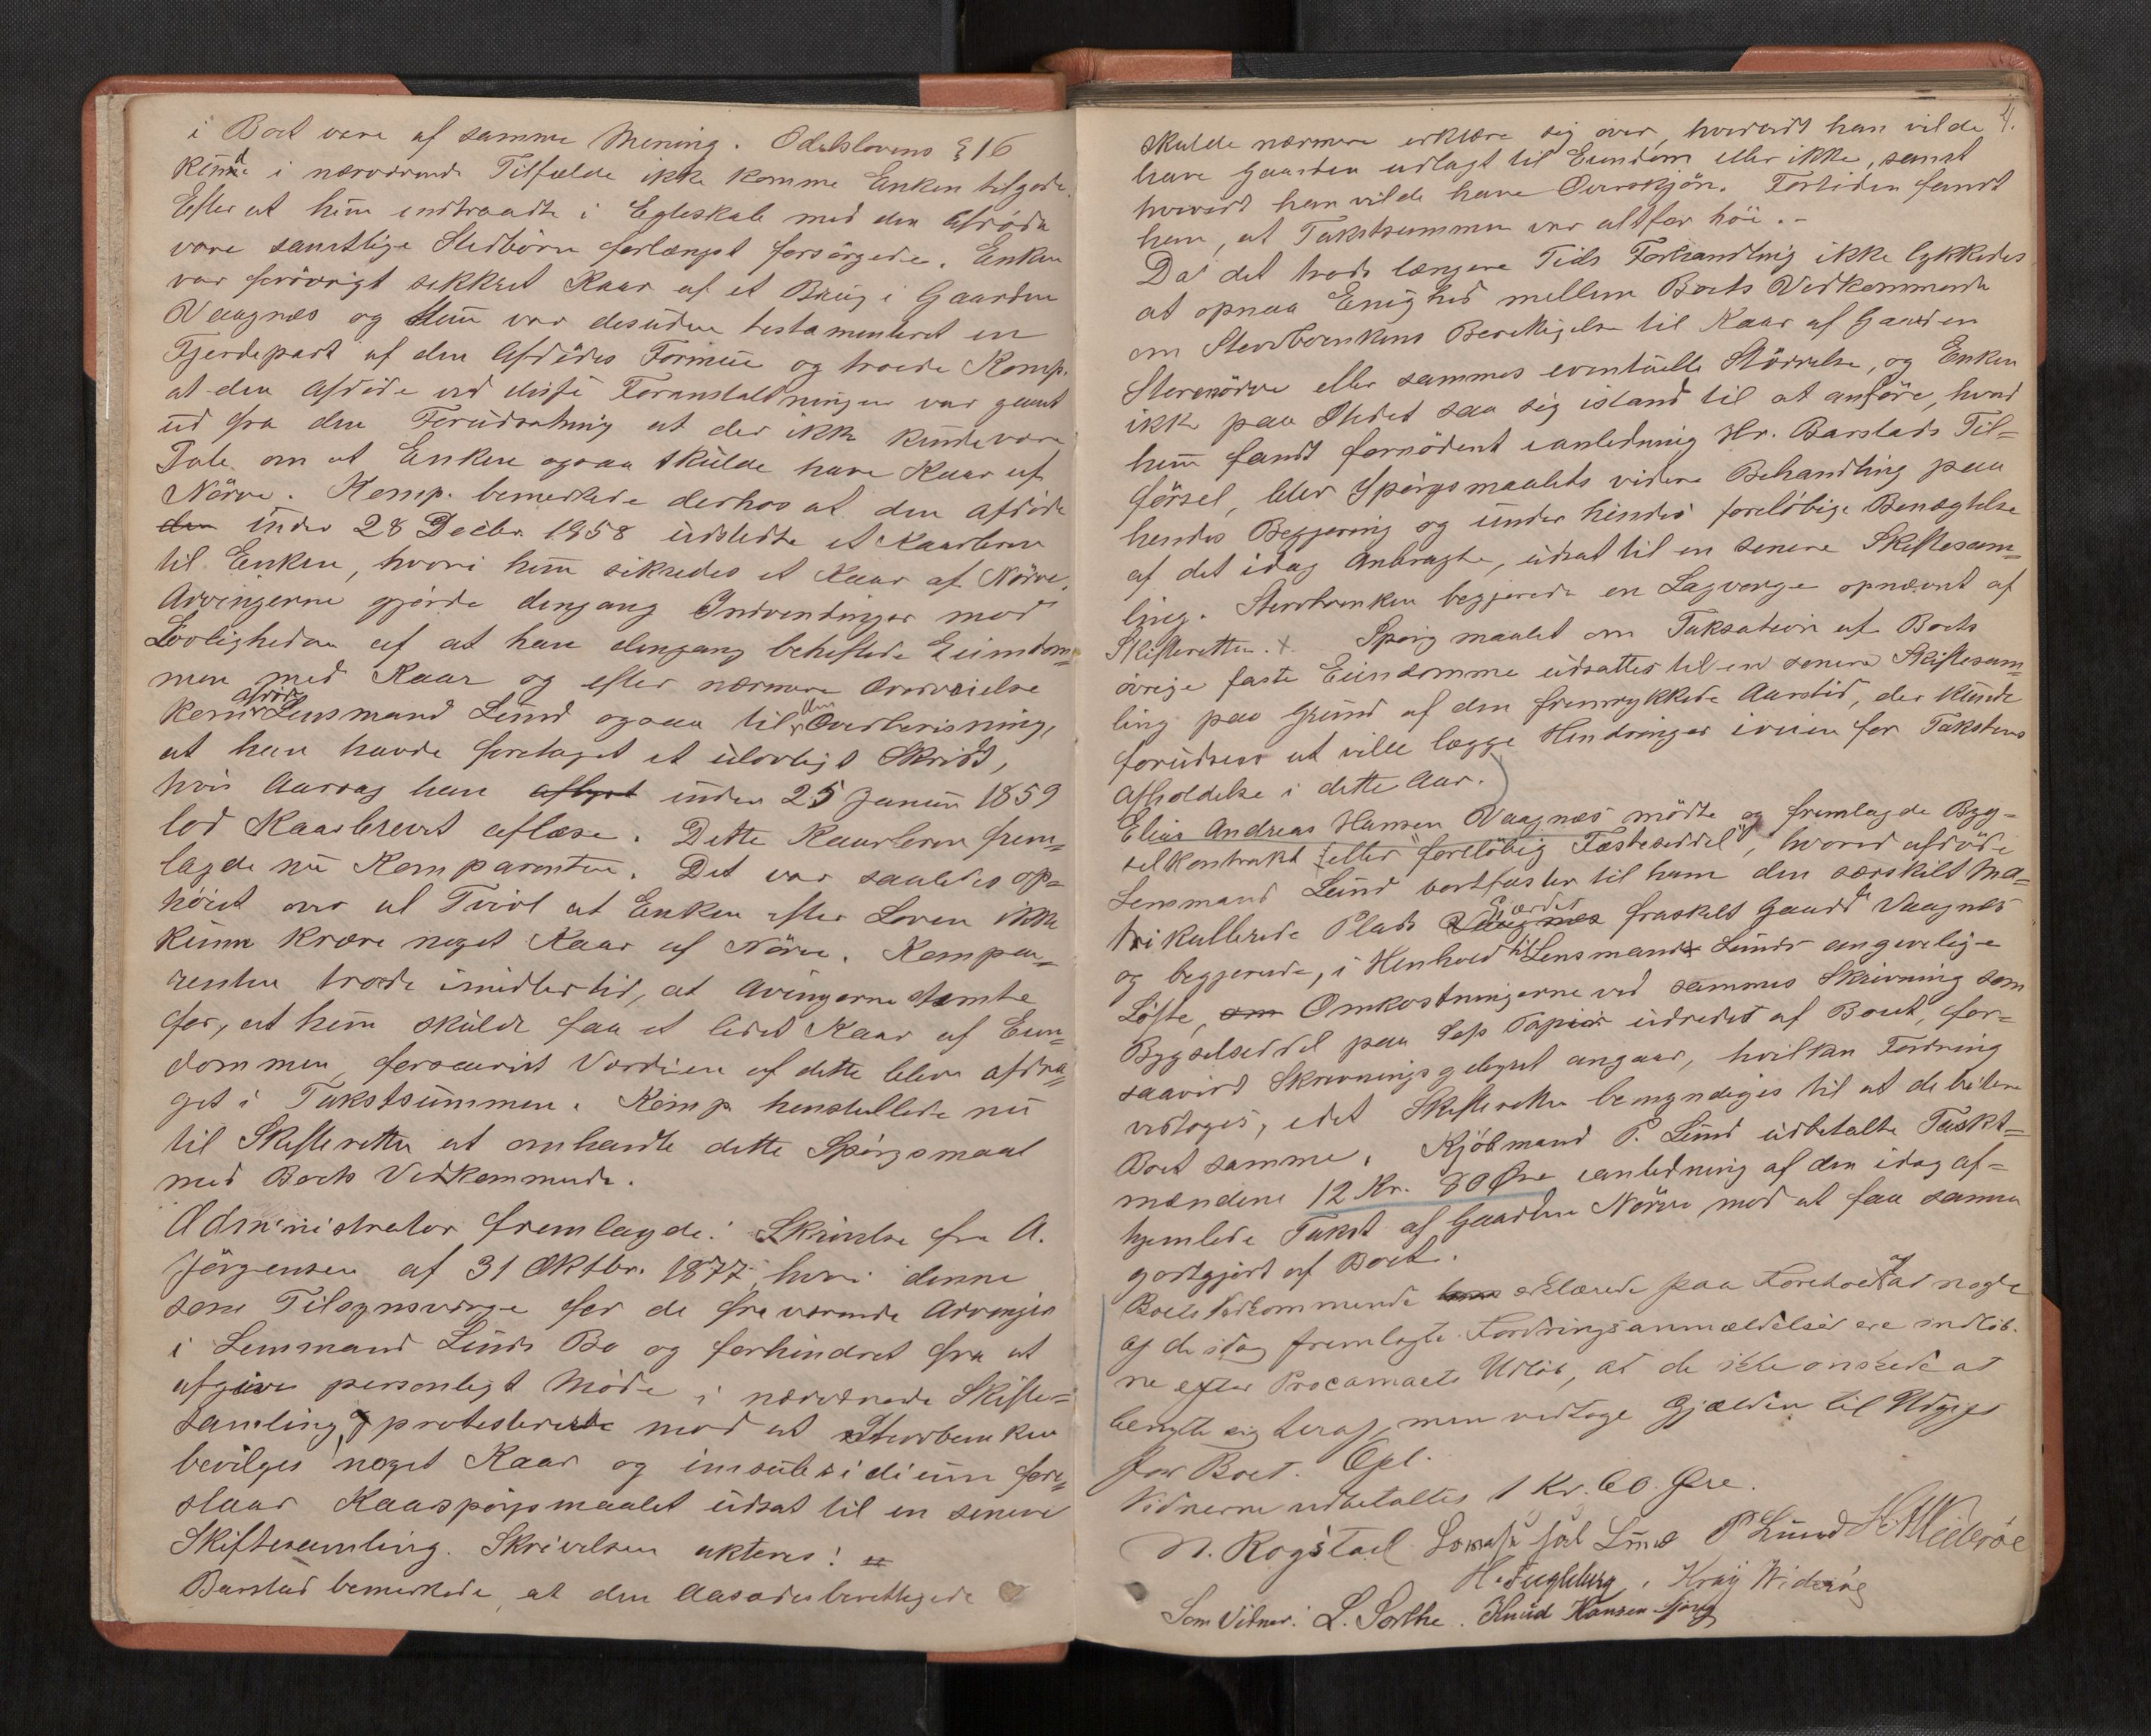 i Boet vare af samme Mening. Odelslovens § 16
kunde i nærværende Tilfælde ikke komme Enken tilgode.
Efter at hun indtraadte i Egteskab med den Afdøde
vare samtlige Stedbörn forlængst forsörgede. Enken
var forövrigt sikkret Kaar af et Brug i Gaarden
Vaagnæs og hun var desuden testamenteret en
Fjerdepart af den Afdödes Formue og troede Komp.
at den Afdöde ved disse Foranstaltninger var gaaet
ud fra den Forudsætning at der ikke kunde være
Tale om at Enken ogsaa skulde have Kaar af
Nörve. Komp. bemerkede derhos at den afdöde
den under 28 Decbr. 1858 udstedte et Kaarbrev
til Enken, hvori hun sikredes et Kaar af Nörve.
Arvingerne gjorde dengang Indvendinger mod
Lovligheden af at han dengang beheftede Eiendom=
men med Kaar og efter nærmere Overveielse
kom afdöde Lensmand Lund ogsaa til den Overbevisning,
at han havde foretaget et ulovligt Skridt,
hvis Aarsag han aflyst under 25 Januar 1859
lod Kaarbrevet aflæse. Dette Kaarbrev frem=
lagde nu Komparenten. Det var saaledes op=
höiet over al Tvivl at Enken efter Loven ikke
kunne kræve noget Kaar af Nörve. Kompa=
renten troede imidlertid, at Arvingerne stemte
for, at hun skulde faa et lidet Kaar af Eien=
dommen, forsaavidt Værdien af dette blev afdra=
get i Takstsummen. Komp. henstillede nu
til Skifteretten at omhandle dette Spörgsmaal
med Boets Vedkommende.
Administrator fremlagde: Skrivelse fra A.
Jörgensen af 31 Oktbr. 1877, hvori denne
som Tilsynsværge for de fraværende Arvinger
i Lensmand Lunds Bo og forhindret fra at
afgive personligt Möde i nærværende Skifte=
samling, protesterede mod at Stervboenken
bevilges noget Kaar og in subsidium fore=
slaar Kaarspörgsmaalet udsat til en senere
Skiftesamling. Skrivelsen akteres:
Barstad bemerkede, at den Aasædesberettigede
4.
skulde nærmere erklære sig over, hvorvidt han vilde
have Gaarden udlagt til Eiendom eller ikke, samt
hvorvidt han vilde have Overskjön. Fortiden fandt
han, at Takstsummen var altfor höi.-
Da det trods længere Tids Forhandling ikke lykkedes
at opnaa Enighed mellem Boets Vedkommende
om Stervboenkens Berettigelse til Kaar af Gaarden
Storenörve eller sammes eventuelle Störrelse, og Enken
ikke paa Stedet saa sig istand til at anföre, hvad
hun fandt fornödent i anledning Hr. Barstads Til=
försel, blev Spörgsmaalets videre Behandling paa
hendes Begjering og under hendes foreløbige Benægtelse
af det idag Anbragte, udsat til en senere Skiftesam=
ling. Stervboenken begjerede en Lagverge opnævnt af
Skifteretten. x Spörgsmaalet om Taksation af Boets
övrige faste Eiendomme udsattes til en senere Skiftesam=
ling paa Grund af den fremrykkede Aarstid, der kunde
forudsees at ville lægge Hindringer iveien for Takstens
Afholdelse i dette Aar.
Elias Andreas Hansen Vaagnæs mödte og fremlagde Byg=
selkontrakt (eller "foreløbig Fæsteseddel", hvorved afdöde
Lensmand Lund bortfæster til ham den særskilt ma=
trikullerede Plads Vaagnæs Gjærdet fraskilt Gaard Vaagnæs
og begjerede, i Henhold til Lensmand Lunds angivelige
Löfte, om Omkostningerne ved sammes Skrivning som
Bygselseddel paa Papir udredet af Boet, for=
saavidt Skrivningsgebyret angaar, hvilken Fordring
vedtoges, idet Skifteretten bemyndiges til at debitere
Boet samme. Kjöbmand P. Lund udbetalte Takst=
mændene 12 Kr. 80 Öre i anledning af den idag af=
hjemlede Takst af Gaarden Nörve mod at faa samme
godtgjort af Boet.
Boets Vedkommende erklærede paa Forehold af at nogle
af de idag fremlagte Fordringsanmældelser ere indløb=
ne efter Proclamaets Udløb, at de ikke önskede at
benytte sig deraf, men vedtoge Gjælden til Udgift
for Boet. Opl.
Vidnerne udbetaltes 1 Kr. 60 Öre.
N. Rogstad Lund P Lund
H. Fugleberg, Wideröe
Som Vidner: L. Sorthe. Knud Hansen